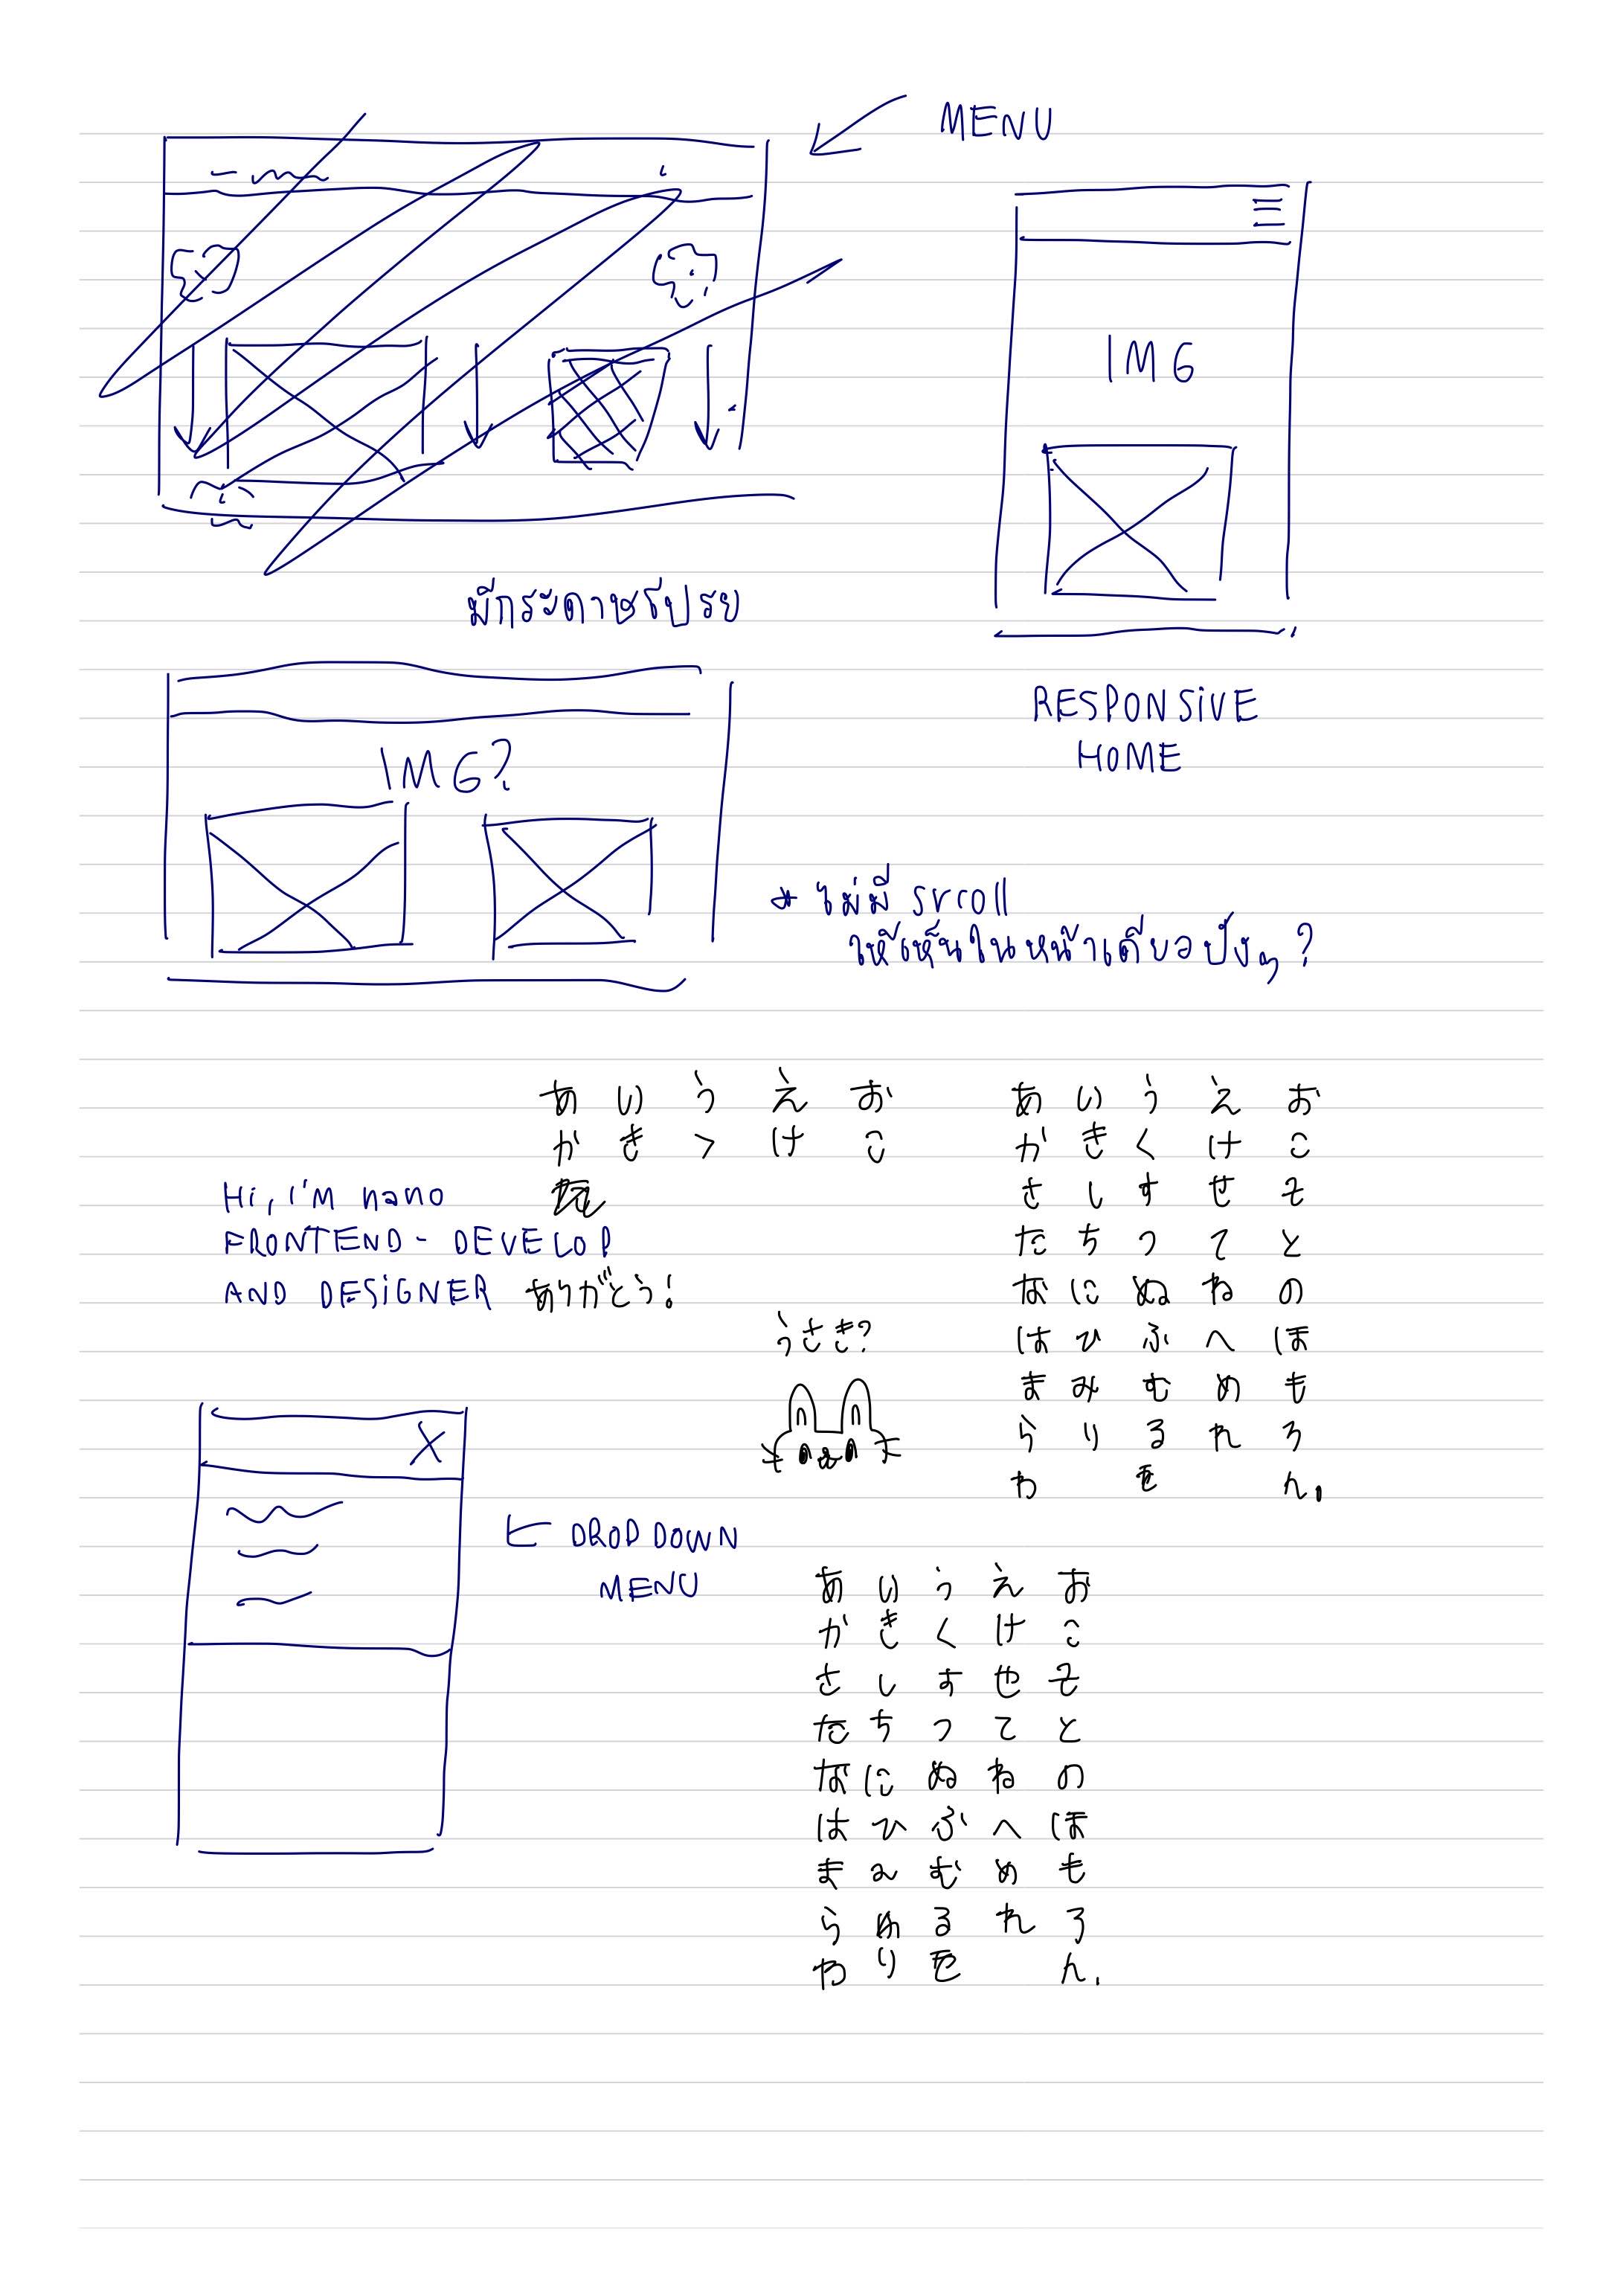 MENU
IMG
มีกระดาษโปรย
RESPONSIVE
HOME
IMG?
* ไม่มี srcoll
ให้เห็นในหน้าเดียวปังๆ?
あ い う え お
か き く け こ
Hi, I'M nano
FRONTEND - DEVELOP
AND DESIGNER ありがとう!
うさき?
あ い う え お
か き く け こ
さ し す せ そ
た ち つ て と
な に ぬ ね の
は ひ ふ へ ほ
ま み む め も
ら り る れ ろ
わ を ん.
DROPDOWN
MENU
あ い う え お
か き く け こ
さ し す せ そ
た ち つ て と
な に ぬ ね の
は ひ ふ へ ほ
ま み む め も
ら る れ ろ
わ り を ん.